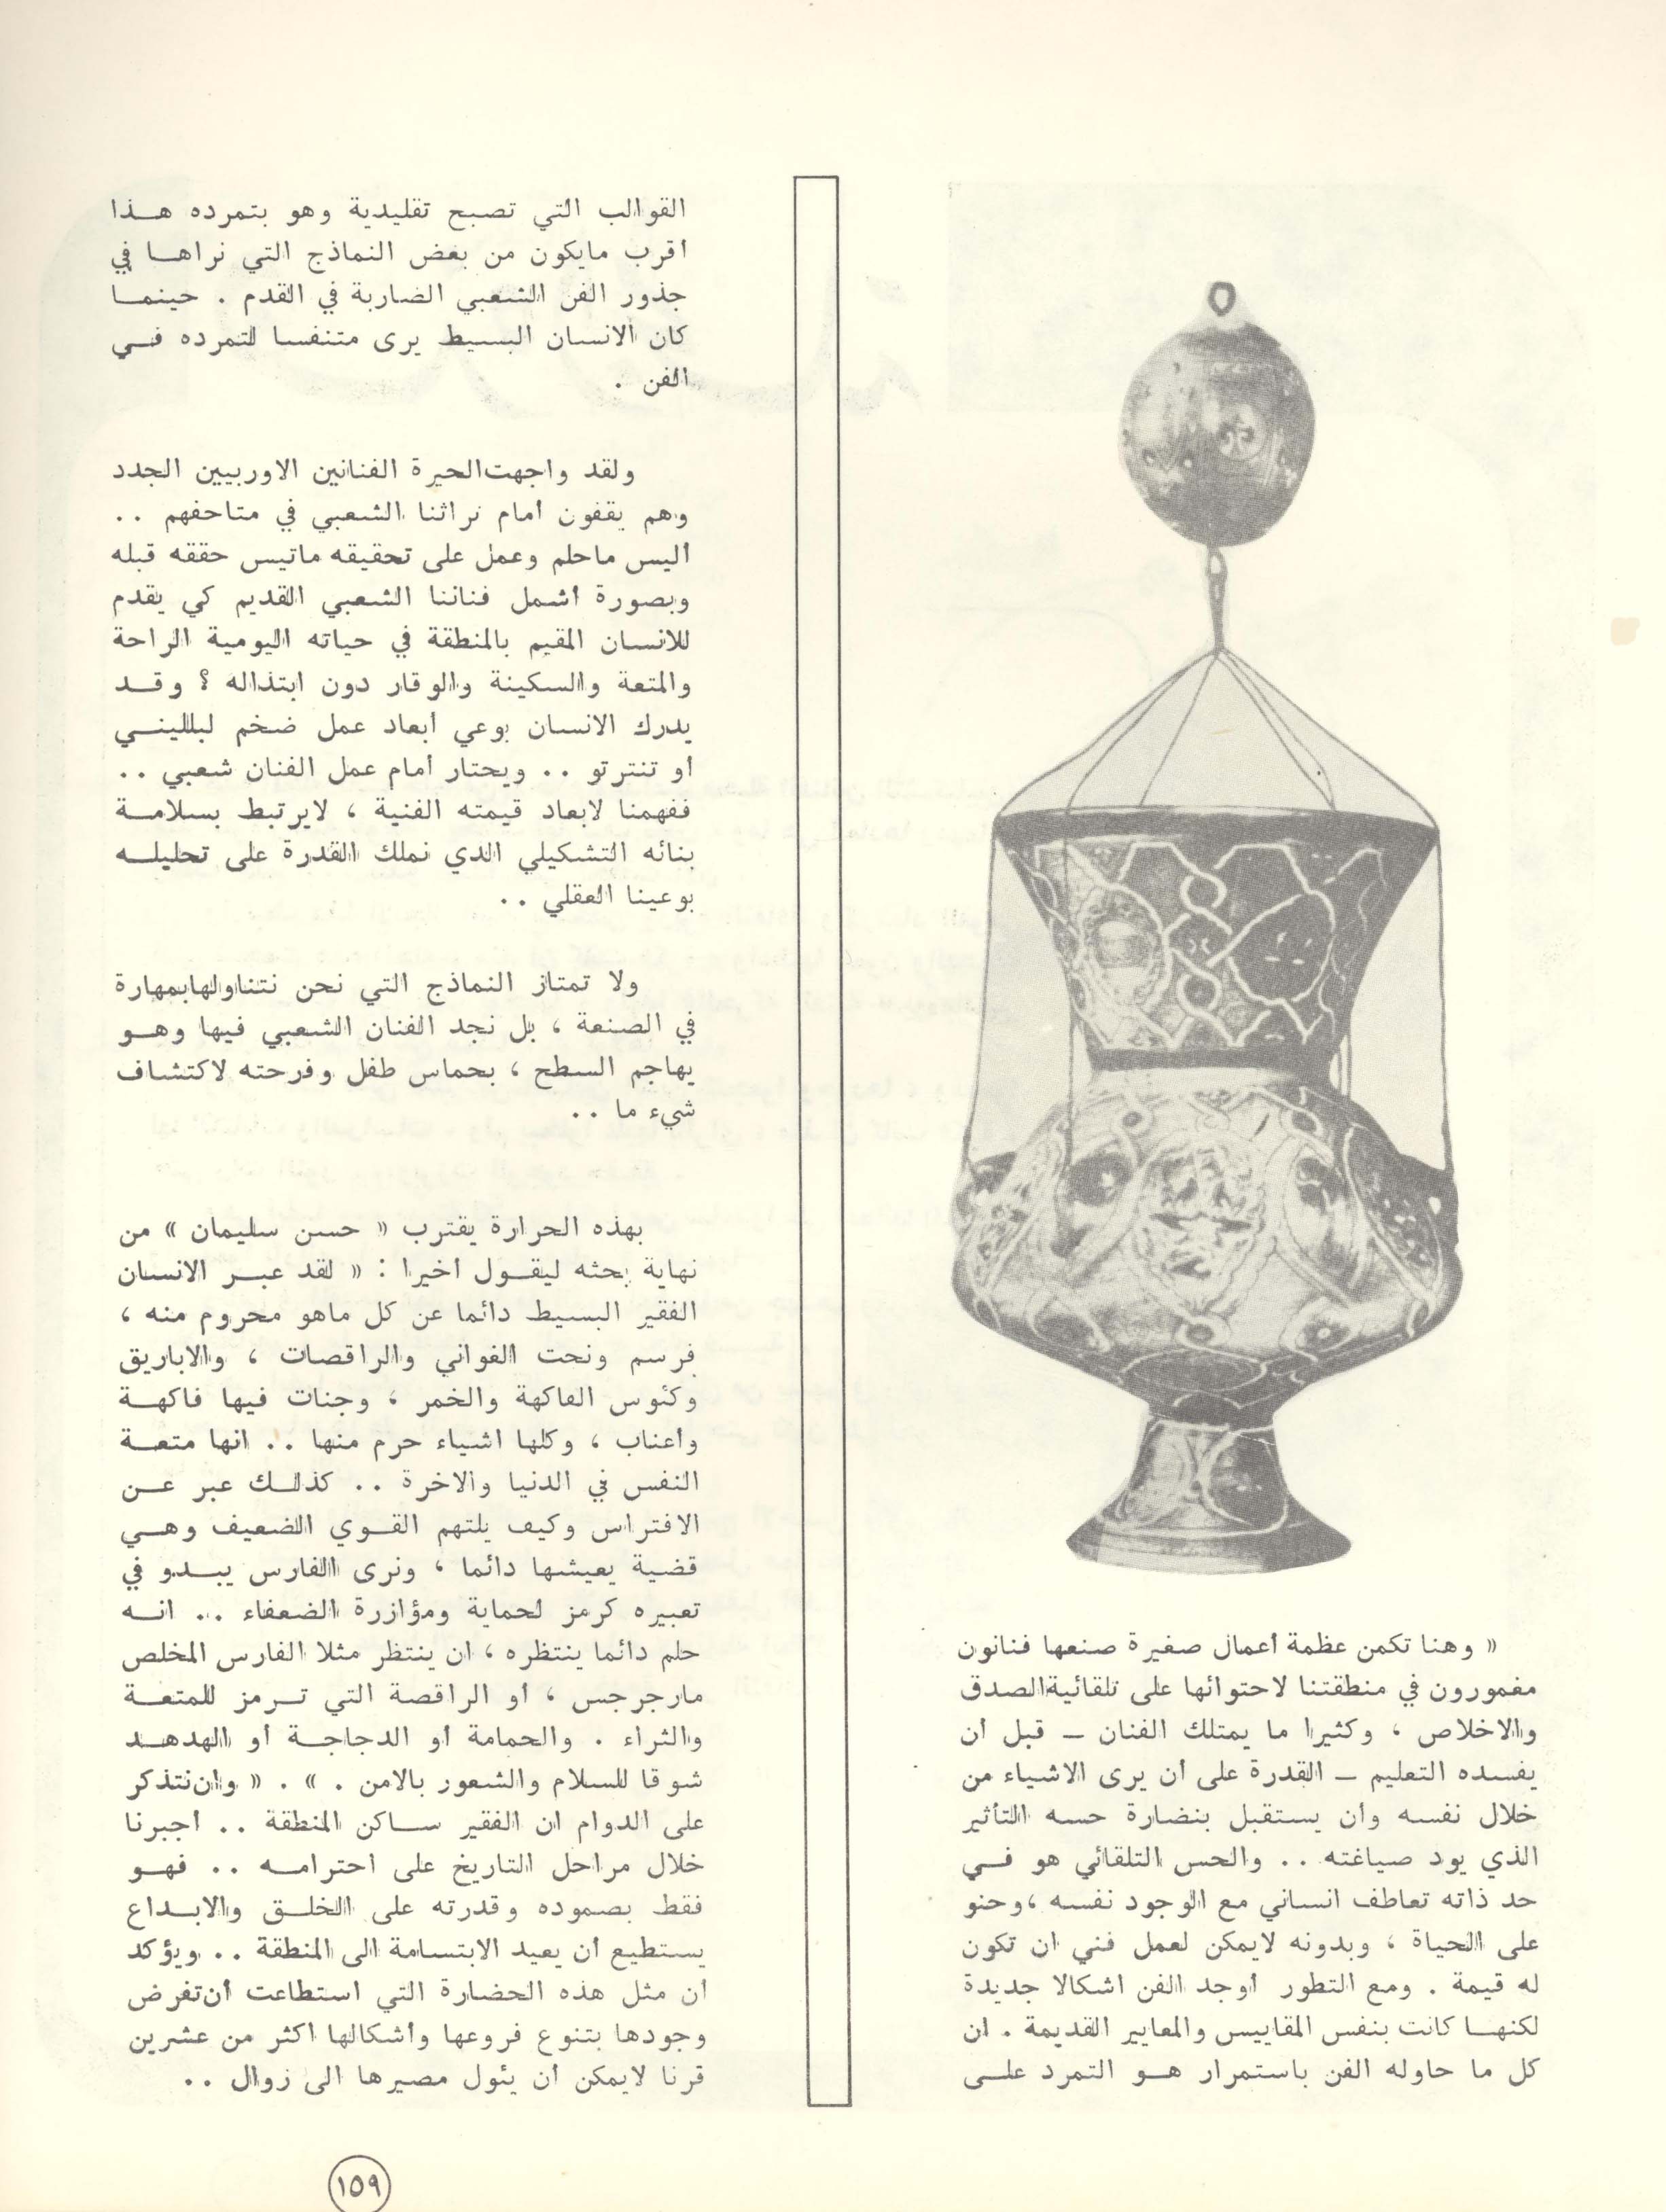 « وهنا تكمن عظمة أعمال صغيرة صنعها فنانون
مغمورون في منطقتنا لاحتوائها على تلقائية الصدق
والاخلاص ، وكثيرا ما يمتلك الفنان ــ قبل أن
يفسده التعليم ــ القدرة على أن يرى الاشياء من
خلال نفسه وأن يستقبل بنضارة حسه التأثير
الذي يود صياغته .. والحس التلقائي هو فــي
حد ذاته تعاطف انساني مع الوجود نفسه ،وحنو
على الحياة ، وبدونه لايمكن لعمل فني ان تكون
له قيمة . ومع التطور أوجد الفن اشكالا جديدة
لكنهــا كانت بنفس المقاييس والمعايير القديمة . ان
كل ما حاوله الفن باستمرار هــو التمرد علــى
القوالب التي تصبح تقليدية وهو بتمرده هــذا
أقرب مايكون من بعض النماذج التي نراهــا في
جذور الفن الشعبي الضاربة في القدم . حينمــا
كان الانسان البسيط يرى متنفسا لتمرده فــي
الفن .
ولقد واجهت الحيرة الفنانين الاوربيين الجدد
وهم يقفون أمام تراثنا الشعبي في متاحفهم ..
أليس ماحلم وعمل على تحقيقه ماتيس حققه قبله
وبصورة أشمل فناننا الشعبي القديم كي يقدم
للانسان المقيم بالمنطقة في حياته اليومية الراحة
والمتعة والسكينة والوقار دون ابتذاله ؟ وقــد
يدرك الانسان بوعي أبعاد عمل ضخم لبللينــي
أو تنترتو .. ويحتار أمام عمل الفنان شعبي ..
ففهمنا لابعاد قيمته الفنية ، لايرتبط بسلامــة
بنائه التشكيلي الذي نملك القدرة على تحليلــه
بوعينا العقلي ..
ولا تمتاز النماذج التي نحن نتناولها بمهارة
في الصنعة ، بل نجد الفنان الشعبي فيها وهــو
يهاجم السطح ، بحماس طفل وفرحته لاكتشاف
شيء ما ..
بهذه الحرارة يقترب « حسن سليمان » من
نهاية بحثه ليقــول أخيرا : « لقد عبــر الانسان
الفقير البسيط دائما عن كل ماهو محروم منه ،
فرسم ونحت الغواني والراقصات ، والاباريق
وكئوس الفاكهة والخمر ، وجنات فيها فاكهــة
وأعناب ، وكلها اشياء حرم منها .. انها متعــة
النفس في الدنيا والاخرة .. كذلــك عبر عــن
الافتراس وكيف يلتهم القــوي الضعيف وهــي
قضية يعيشها دائما ، ونرى الفارس يبــدو في
تعبيره كرمز لحماية ومؤازرة الضعفاء .. انــه
حلم دائما ينتظره ، ان ينتظر مثلا الفارس المخلص
مارجرجس ، أو الراقصة التي تــرمز للمتعــة
والثراء . والحمامة أو الدجاجــة أو الهدهــد
شوقا للسلام والشعور بالامن . » . « وان نتذكر
على الدوام ان الفقير ســاكن المنطقة .. أجبرنا
خلال مراحل التاريخ على احترامــه .. فهــو
فقط بصموده وقدرته على الخلــق والابــداع
يستطيع أن يعيد الابتسامة الى المنطقة .. ويؤكد
أن مثل هذه الحضارة التي استطاعت أن تفرض
وجودها بتنوع فروعها وأشكالها اكثر من عشرين
قرنا لايمكن أن يئول مصيرها الى زوال ..
١٥٩